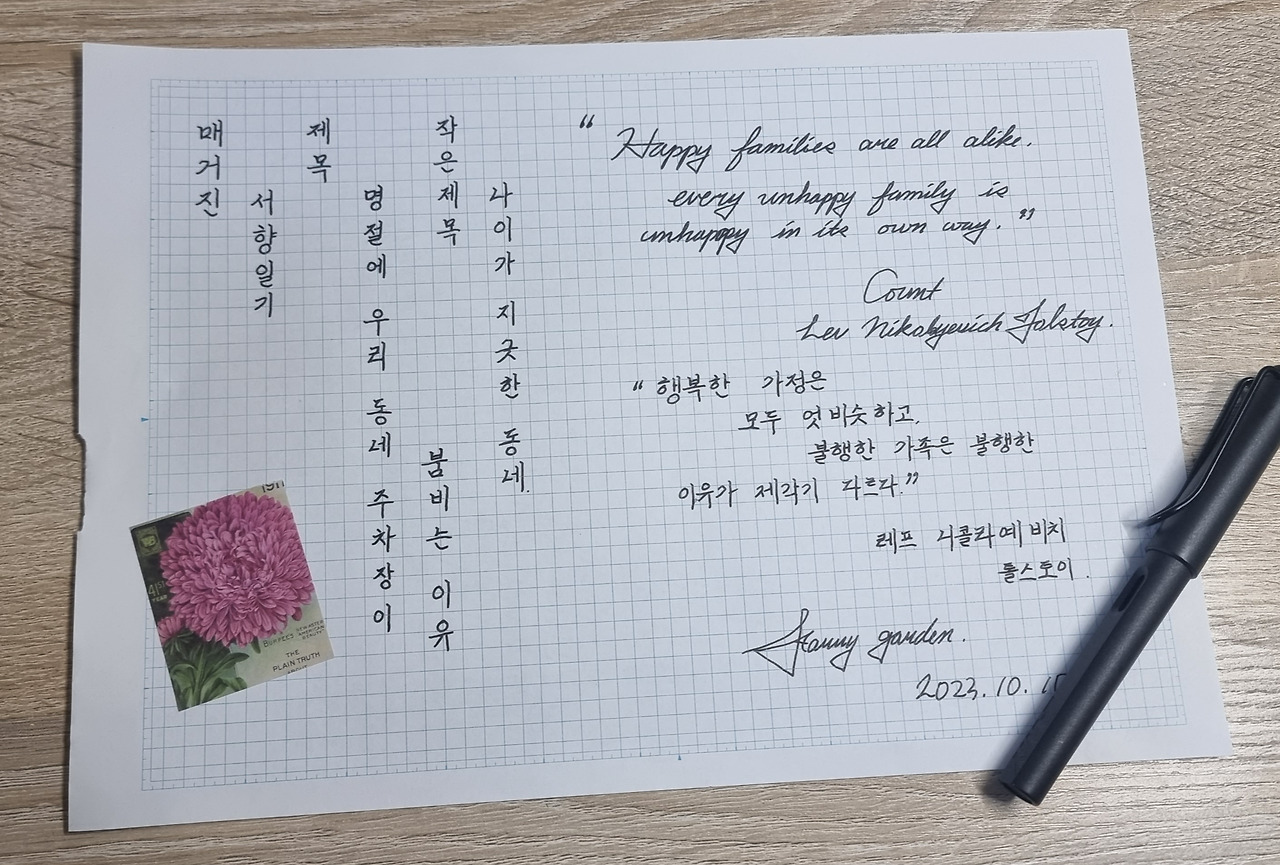 매거진
서향일기
제목
명절에 우리 동네 주차장이
붐비는 이유
작은제목
나이가 지긋한 동네.
“Happy families are all alike.
every unhappy family is
unhappy in its own way.”
Count
Lev Nikolyevich Tolstoy.
“행복한 가정은
모두 엇비슷하고,
불행한 가족은 불행한
이유가 제각기 다르다.”
레프 니콜라예비치
톨스토이.
Starry garden.
2023. 10.
41ST
YEAR
BURPEE'S
"AMERICAN
BEAUTY"
THE
PLAIN TRUTH